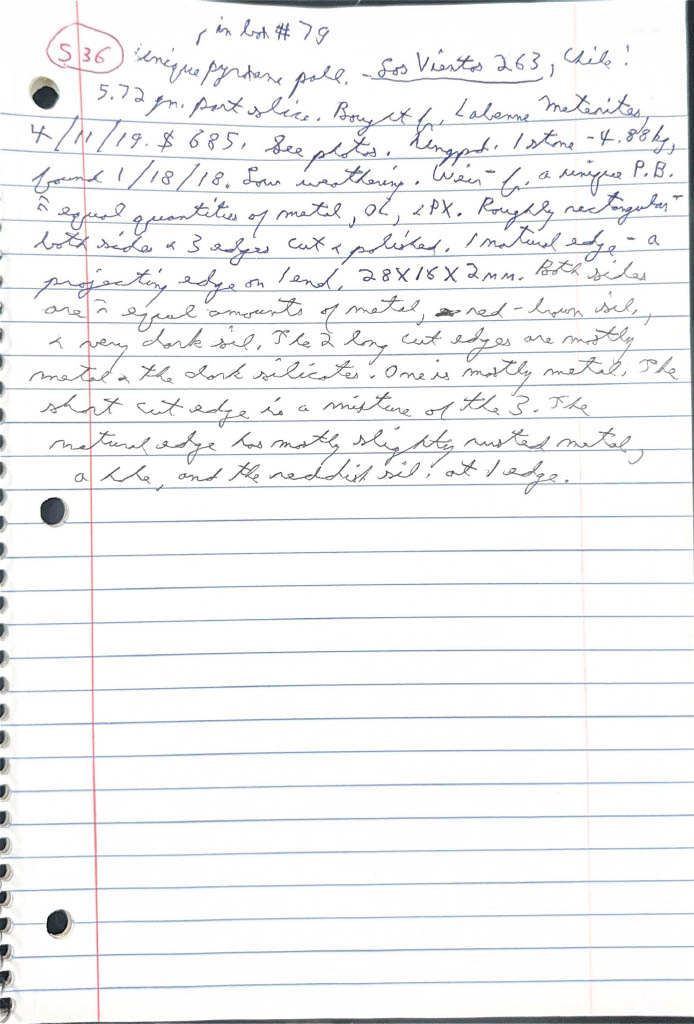 in box # 79
536 Unique pyroxene pall. - Los Vientos 263, Chile!
5.72 gm. part slice. Bought f. Labenne Meteorites,
4/11/19. $ 685. See photos. Ungpd. 1 stone - 4.88 kg,
found 1/18/18. Low weathering. Weir- f. a unique P.B.
≈ equal quantities of metal, OL, & PX. Roughly rectangular-
both sides & 3 edges cut & polished. 1 natural edge - a
projecting edge on 1 end. 28X16X2mm. Both sides
are ≈ equal amounts of metal, red-brown sil.,
& very dark sil. The 2 long cut edges are mostly
metal & the dark silicates. One is mostly metal. The
short cut edge is a mixture of the 3. The
natural edge has mostly slightly rusted metal,
a hole, and the reddish sil. at 1 edge.